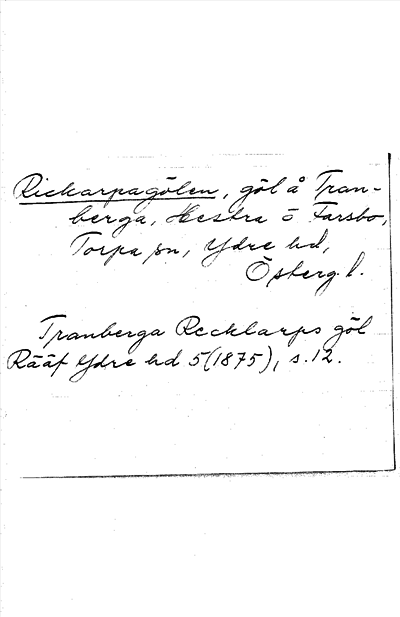 Rickarpagölen, göl å Tran-
berga, Hestra o Farsbo,
Torpa sn, Ydre hd,
Österg. l.
Tranberga Recklarps göl
Rääf Ydre hd 5 (1875), s. 12.